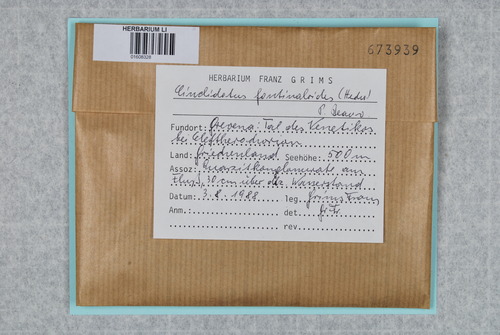 HERBARIUM LI
01608328
673939
HERBARIUM FRANZ GRIMS
Cinclidotus fontinaloides (Hedw)
P. Beauv
Fundort: Grevena: Tal des Venetikos
bei
Land: Griechenland Seehöhe: 500 m
Assoz: Quarzitkonglomerate am
Fluß, 30 cm über der Wasserstand
Datum: 3.8.1988 leg. Grims Franz
Anm.: det.
rev.